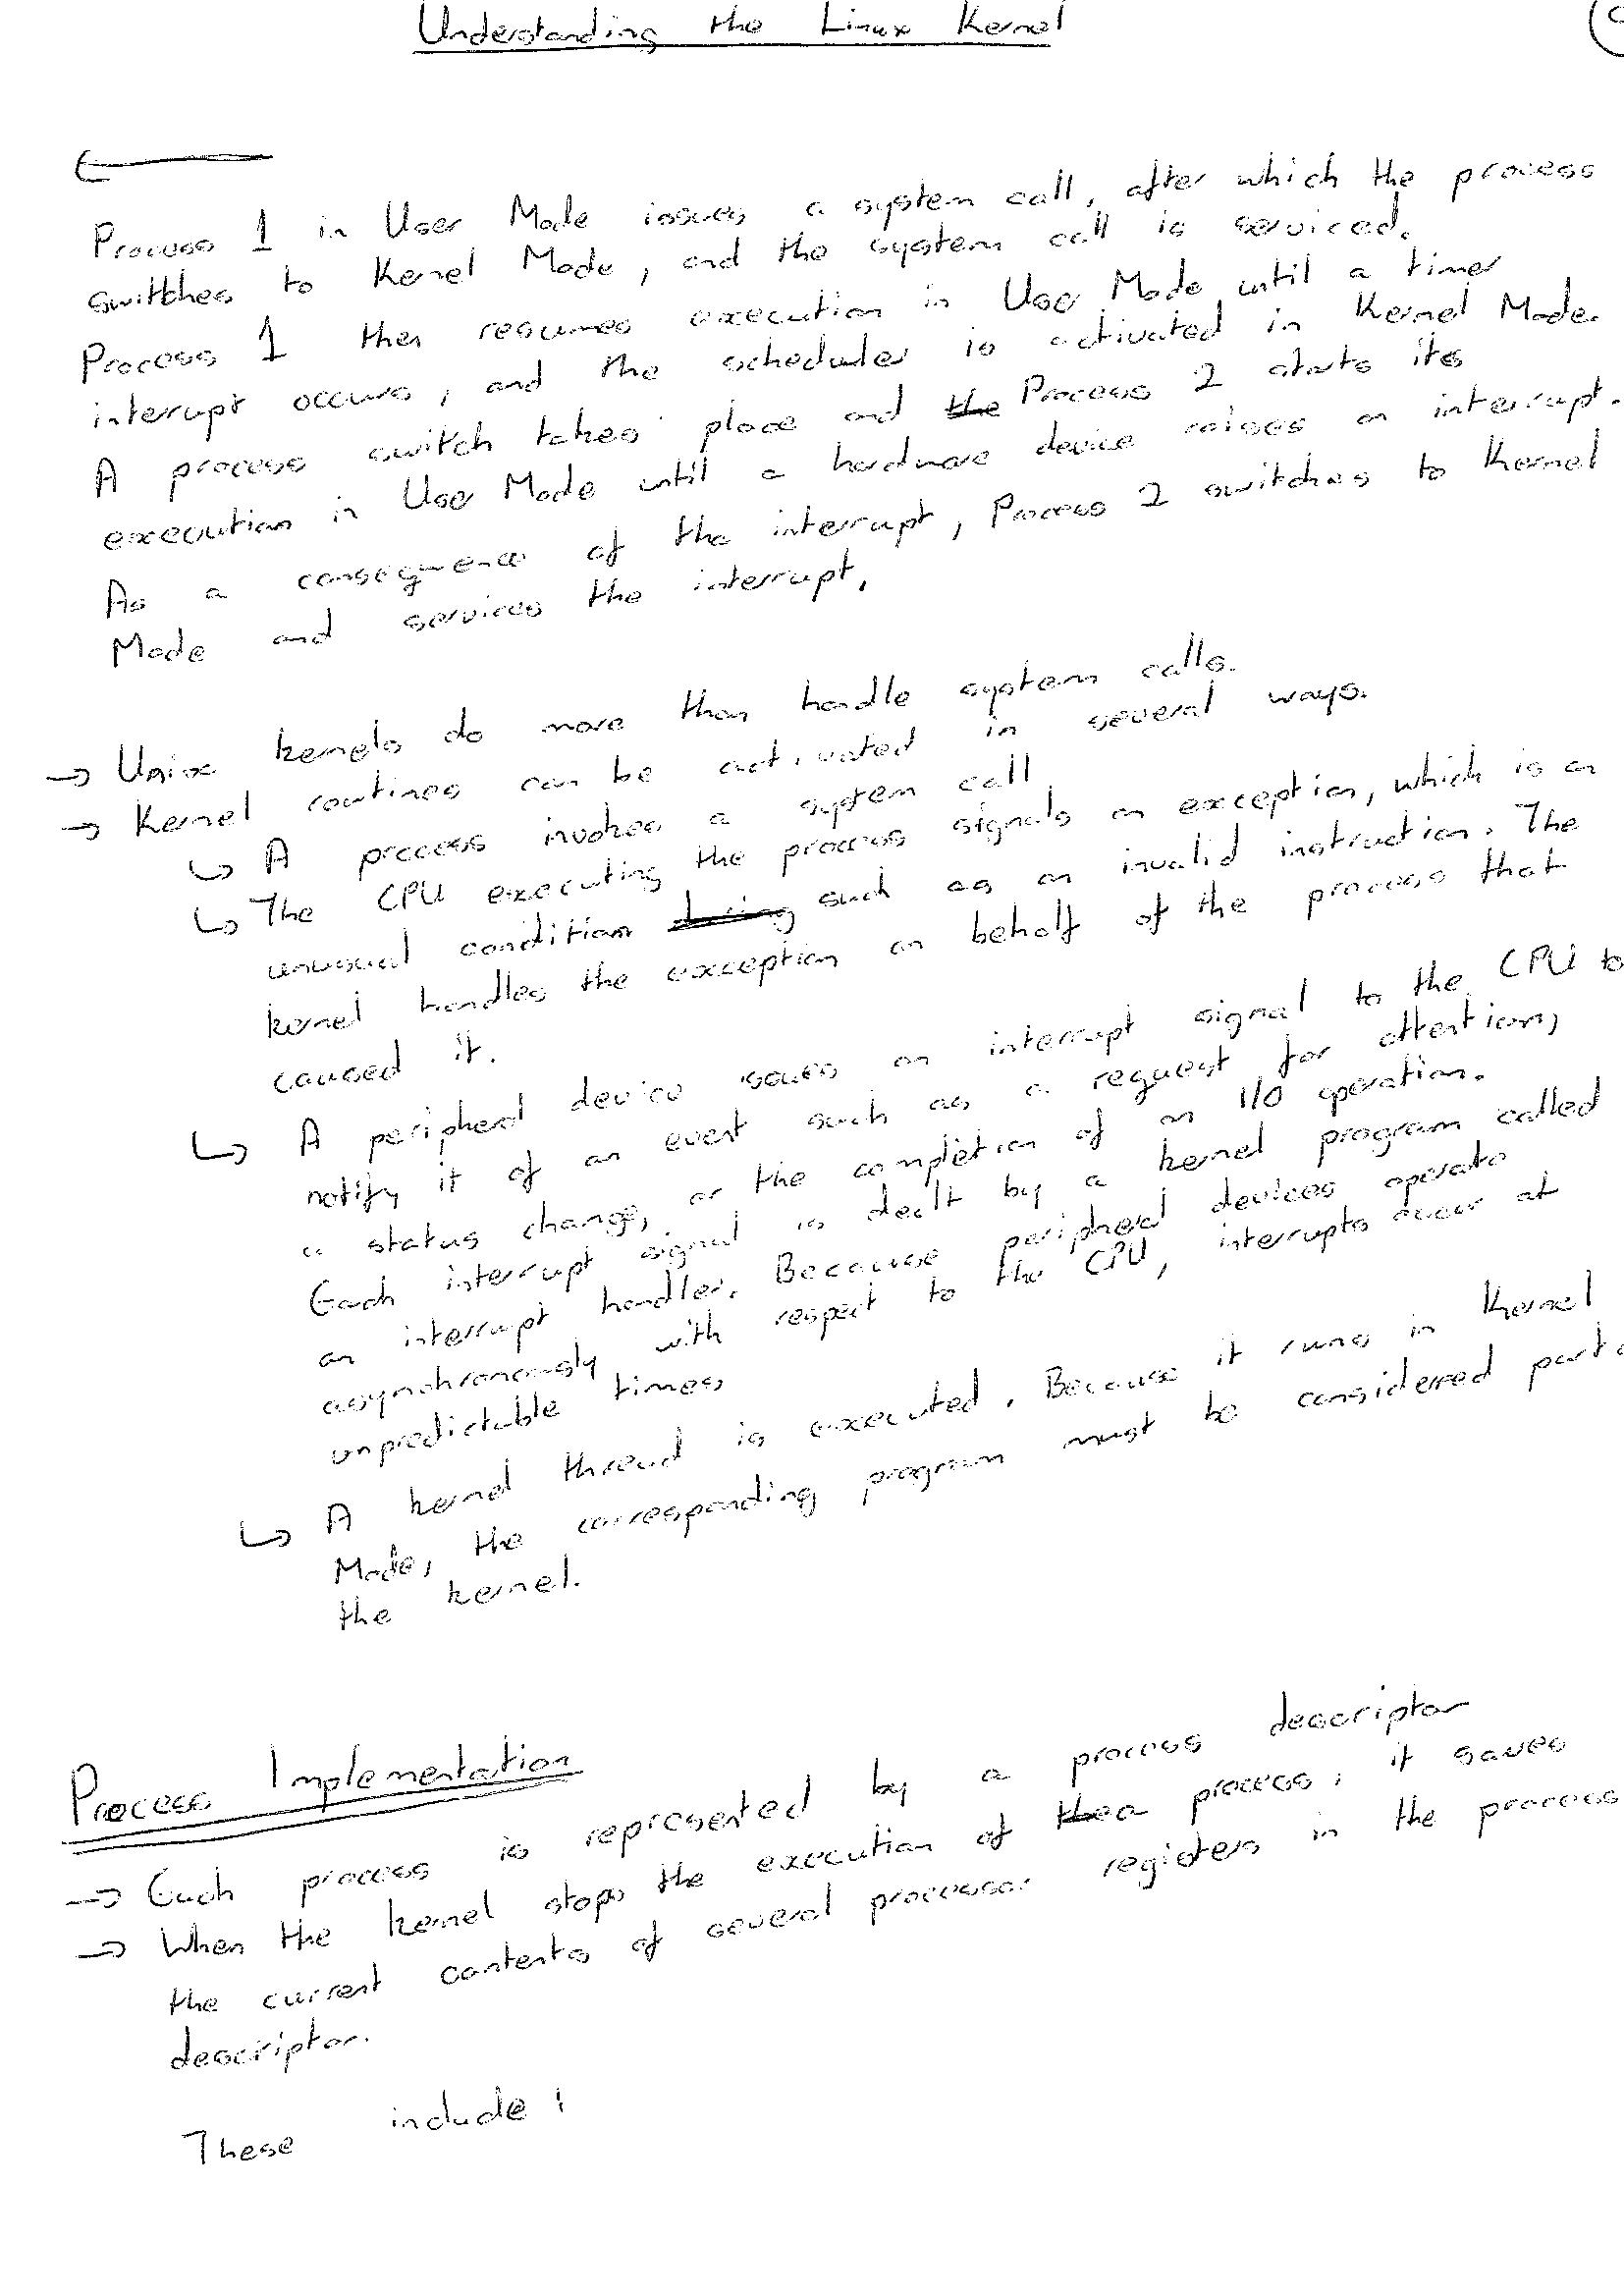 Understanding the Linux Kernel
Process 1 in User Mode issues a system call, after which the process
switches to Kernel Mode, and the system call is serviced.
Process 1 then resumes execution in User Mode until a timer
interrupt occurs, and the scheduler is activated in Kernel Mode.
A process switch takes place and the Process 2 starts its
execution in User Mode until a hardware device raises an interrupt.
As a consequence of the interrupt, Process 2 switches to Kernel
Mode and services the interrupt.
→ Unix kernels do more than handle system calls.
→ Kernel routines can be activated in several ways.
↳ A process invokes a system call
↳ The CPU executing the process signals an exception, which is an
unusual condition such as an invalid instruction. The
kernel handles the exception on behalf of the process that
caused it.
↳ A peripheral device issues an interrupt signal to the CPU to
notify it of an event such as a request for attention,
a status change, or the completion of an I/O operation.
Each interrupt signal is dealt by a kernel program called
an interrupt handler. Because peripheral devices operate
asynchronously with respect to the CPU, interrupts occur at
unpredictable times
↳ A kernel thread is executed. Because it runs in Kernel
Mode, the corresponding program must be considered part
the kernel.
Process Implementation
→ Each process is represented by a process descriptor
→ When the kernel stops the execution of a process, it saves
the current contents of several processor registers in the process
descriptor.
These include: